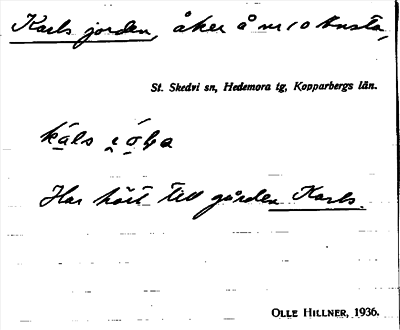 Karls jorden, åker å nr 10 Knsta,
St. Skedvi sn, Hedemora tg, Kopparbergs län.
Har hört till gården Karls.
OLLE HILLNER, 1936.